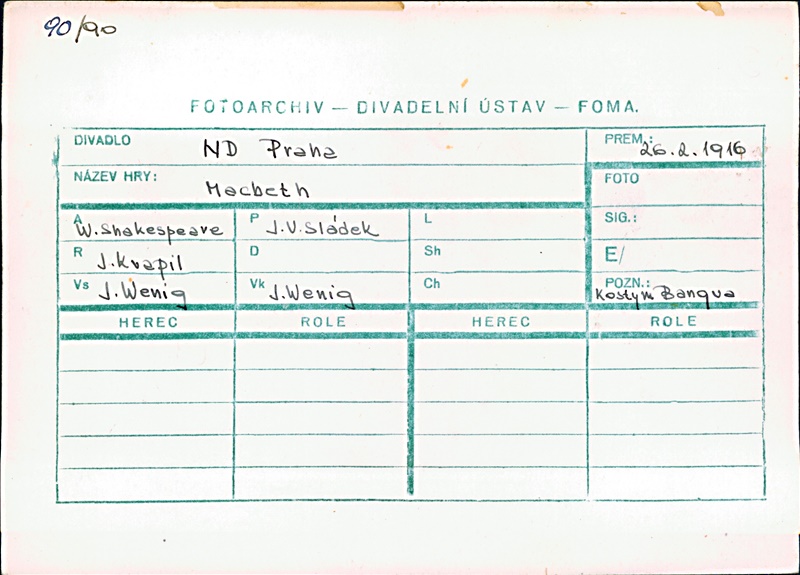 90/90
FOTOARCHIV — DIVADELNÍ ÚSTAV — FOMA.
DIVADLO ND Praha PREM.: 26.2.1916
NÁZEV HRY: Macbeth FOTO
A W. Shakespeare P J.V. Sládek L SIG.:
R J. Kvapil D Sh E/
Vs J. Wenig Vk J. Wenig Ch POZN.: Kostym Banqua
HEREC ROLE HEREC ROLE